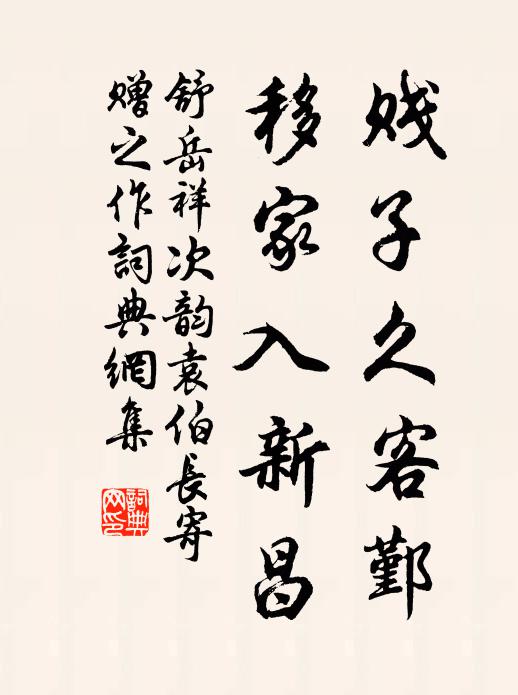 贱子久客鄞
移家入新昌
舒岳祥次韵袁伯長寄
赠之作詞典網集
詞典
网印